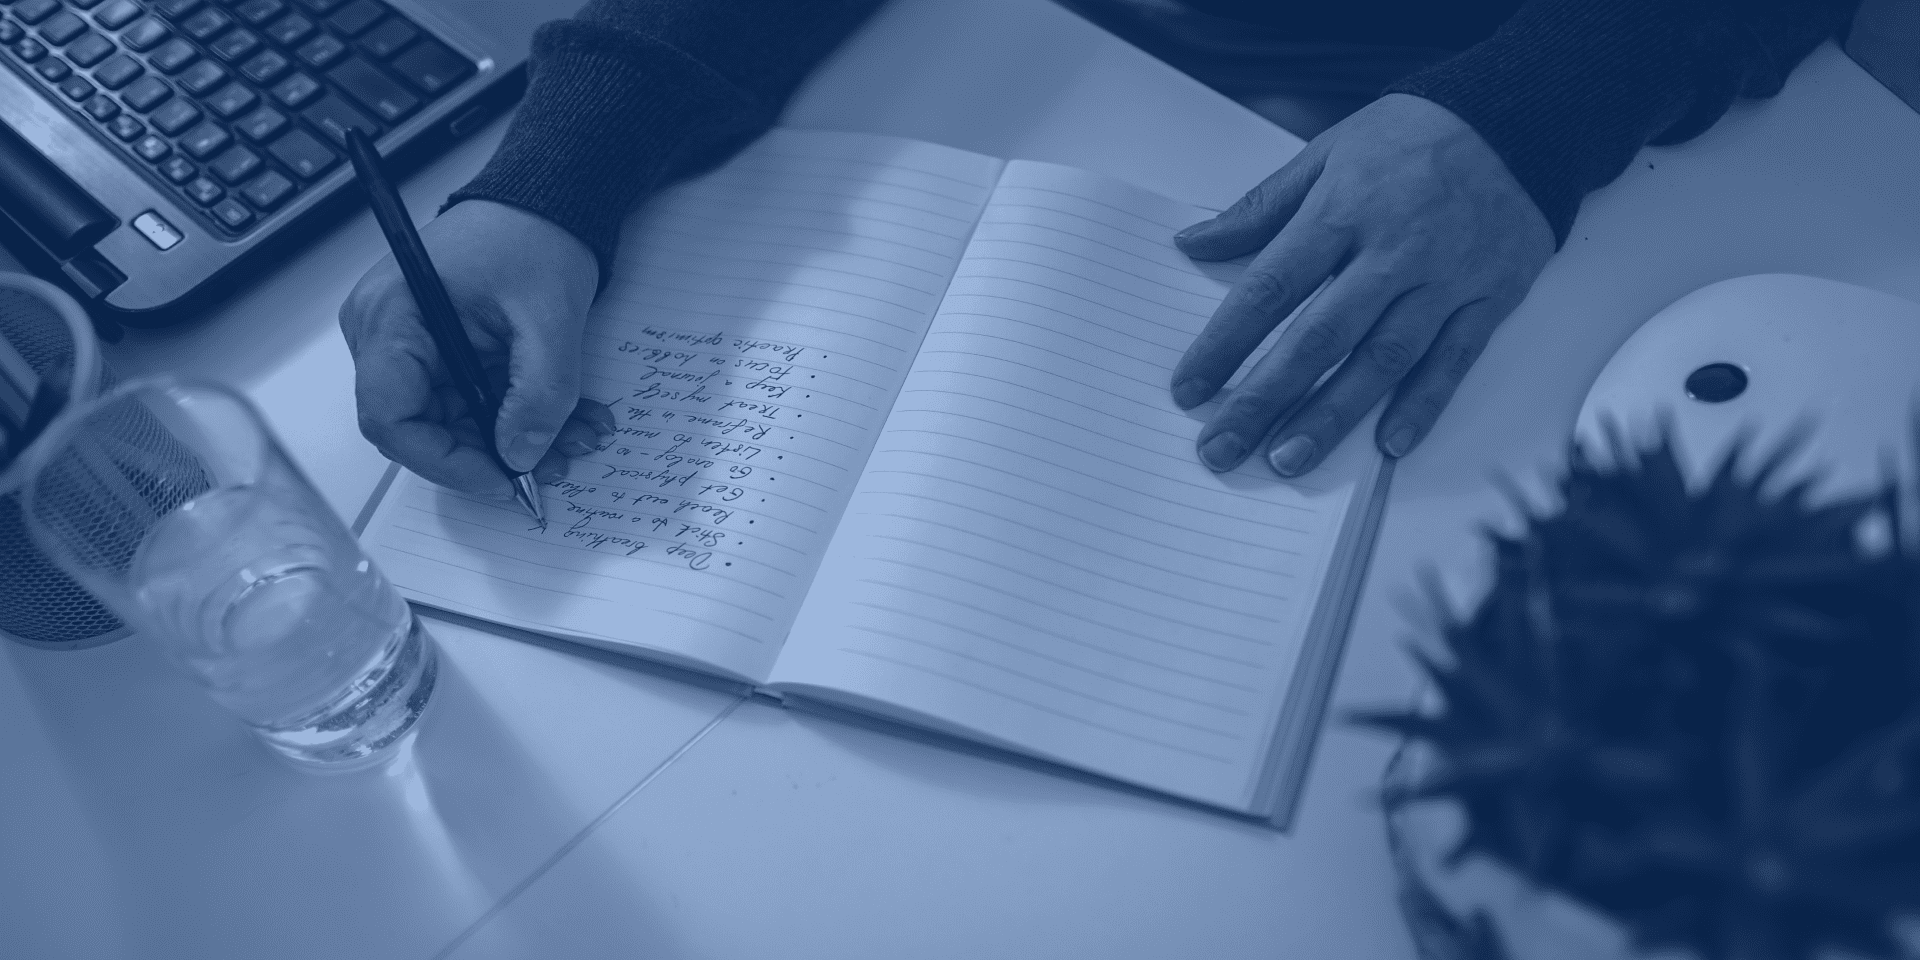 • Deep breathing
• Stick to a routine
• Reach out to others
• Get physical
• Go analog - no
• Listen to music
• Reframe in the
• Treat myself
• Keep a journal
• Focus on hobbies
• Practic optimism